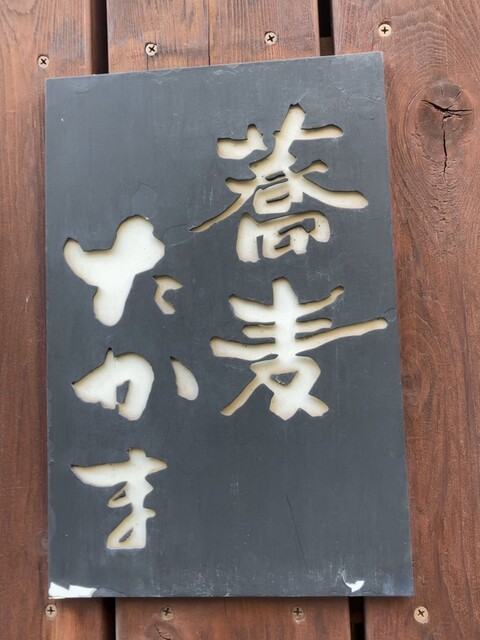 蕎麦
たかま